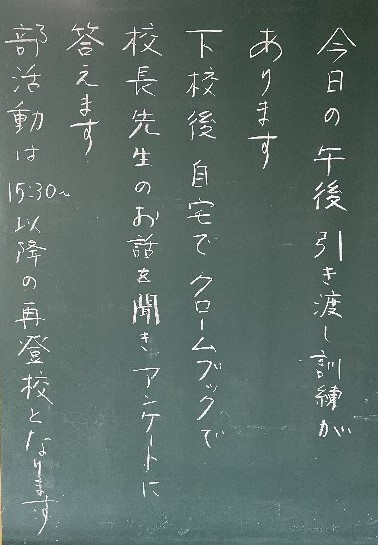 今日の午後引き渡し訓練が
あります
下校後自宅でクロームブックで
校長先生のお話を聞きアンケートに
答えます
部活動は15:30〜以降の再登校となります